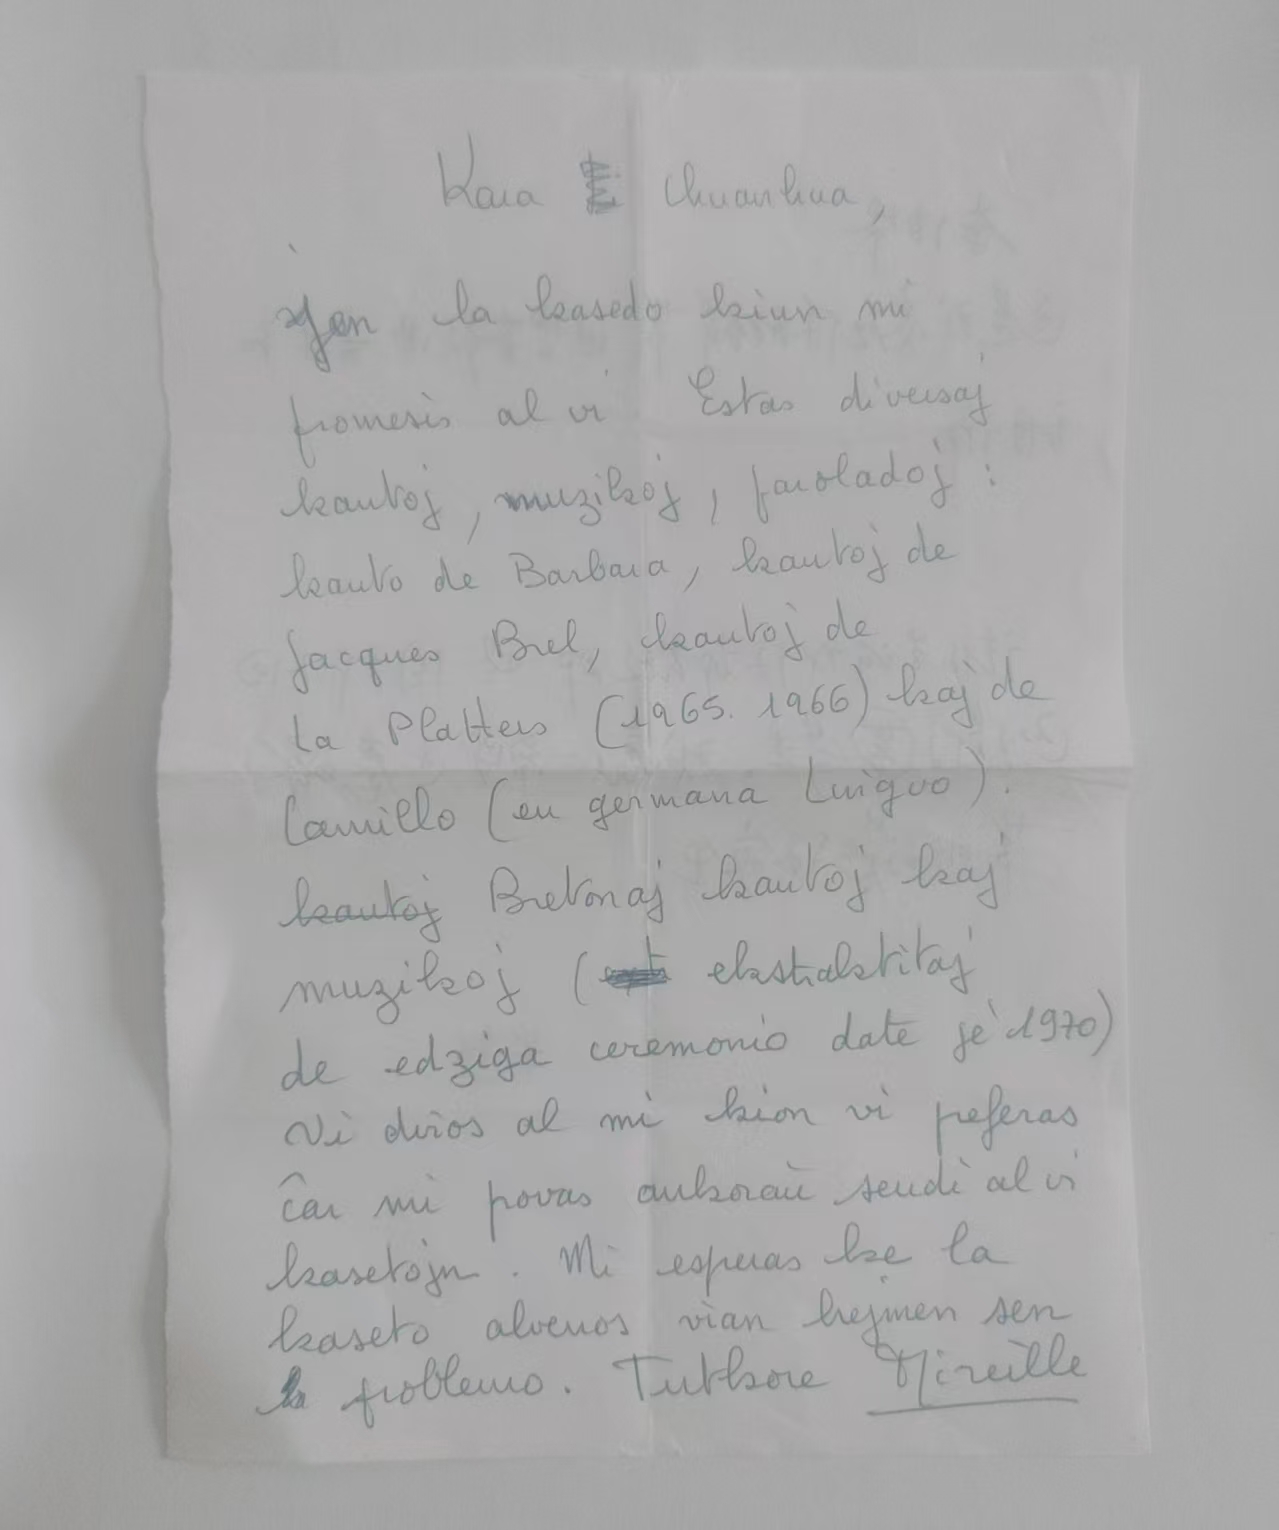 Kara Chuanhua,
Jen la kasedo kiun mi
promesis al vi Estas diversaj
kantoj, muzikoj, paroladoj :
kanto de Barbara, kantoj de
Jacques Brel, kantoj de
La Platters (1965. 1966) kaj de
Camillo (en germana Linguo).
kantoj Bretonaj kantoj kaj
muzikoj ( ekstraktitaj
de edziga ceremonio date je 1970)
Vi diros al mi kion vi preferas
ĉar mi povas ankoraŭ sendi al vi
kasetojn. Mi esperas ke la
kaseto alvenos vian hejmen sen
problemo. Tutkore Mireille